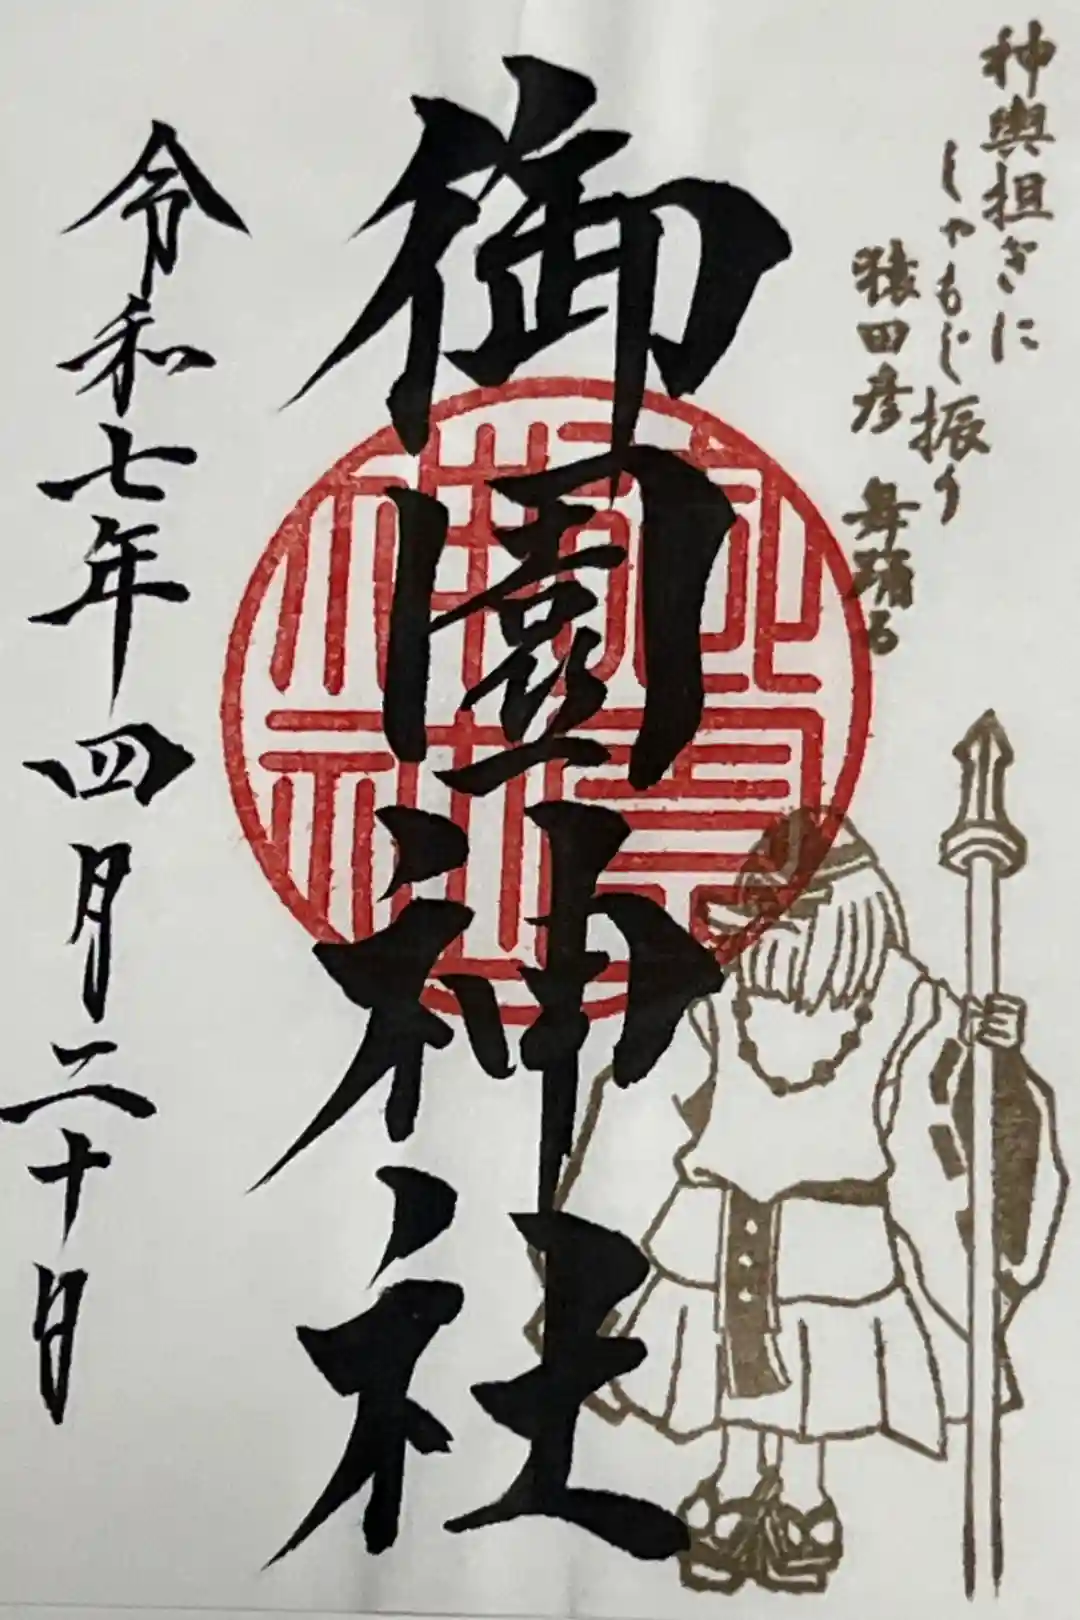 神輿担ぎに
しゃもじ振り
猿田彦 舞踊る
御園神社
令和七年四月二十日